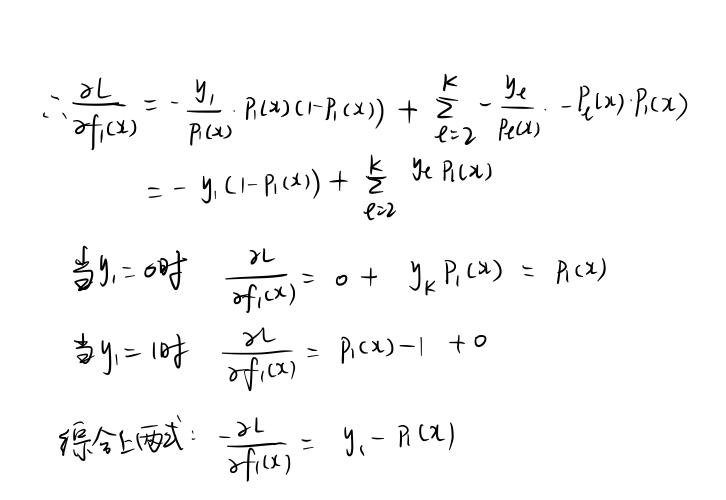 ∴ ∂L/∂f₁(x) = - y₁/P₁(x) · P₁(x)(1-P₁(x)) + Σ_{ℓ=2}^{K} - y_ℓ/P_ℓ(x) · -P_ℓ(x)·P₁(x)
= - y₁(1-P₁(x)) + Σ_{ℓ=2}^{K} y_ℓ P₁(x)
当y₁=0时 ∂L/∂f₁(x) = 0 + y_K P₁(x) = P₁(x)
当y₁=1时 ∂L/∂f₁(x) = P₁(x)-1 +0
综合上两式: -∂L/∂f₁(x) = y₁ - P₁(x)